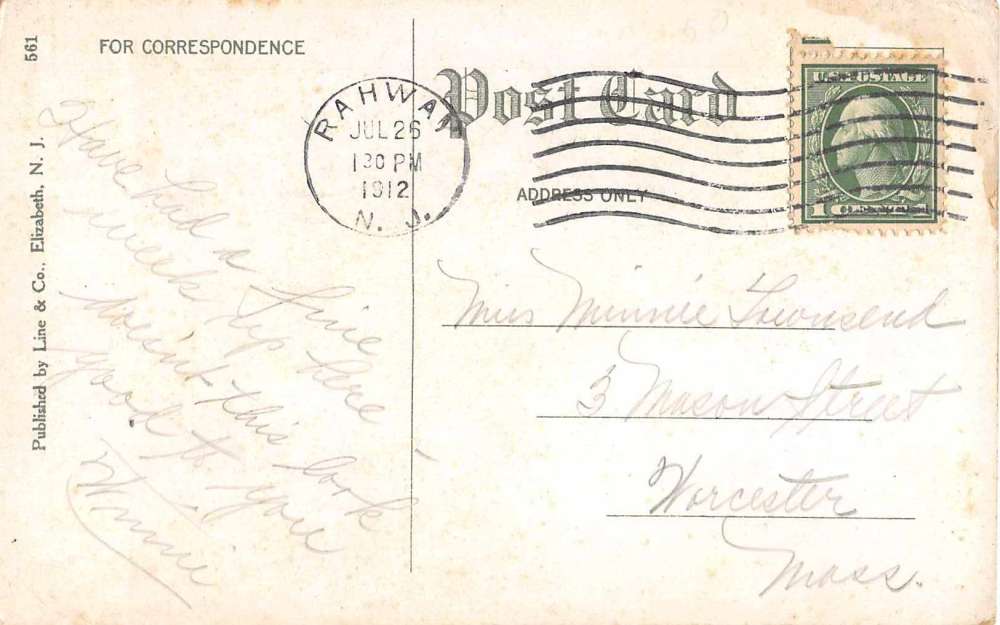 561
Published by Line & Co., Elizabeth, N. J.
FOR CORRESPONDENCE
Have had a fine
week up here
doesn't this look
good to you
Winnie
RAHWAY
JUL 26
130 PM
1912
N. J.
Post Card
ADDRESS ONLY
U.S. POSTAGE
1
Miss Minnie Townsend
3 Mason Street
Worcester
Mass.